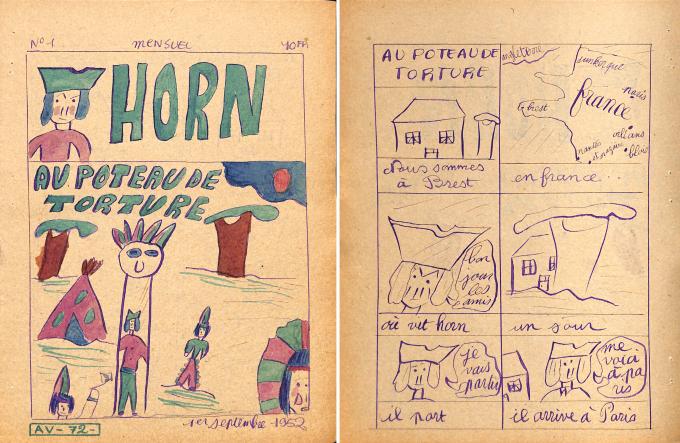 No 1
mensuel
40 FR
HORN
AU POTEAU DE
TORTURE
1er septembre 1952
AV-72-
AU POTEAU DE
TORTURE
angleterre
dunkerque
france
paris
brest
orléans
nantes
st nazaire
blois
Nous sommes
à Brest
en france..
bon
jour
les
amis
où vit horn
un jour
je
vais
partir
me
voici
à pa
ris
il part
il arrive à Paris